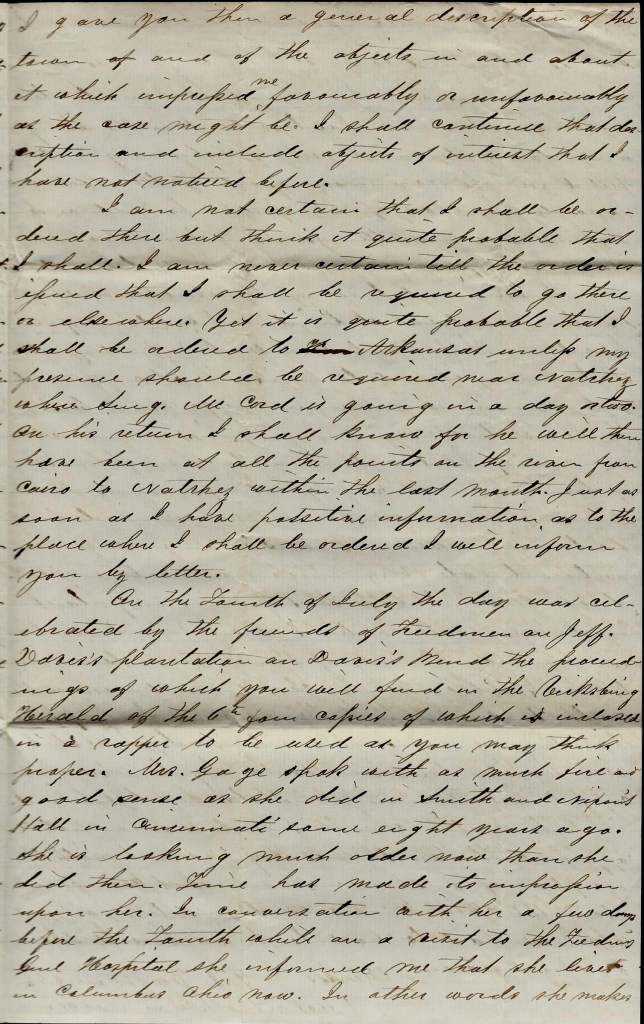 I gave you then a general description of the
town of and of the objects in and about
it which impressed me favourably or unfavourably
as the case might be. I shall continue that des
cription and include objects of interest that I
have not noticed before.
I am not certain that I shall be or-
dered there but think it quite probable that
I shall. I am never certain till the order is
issued that I shall be required to go there
or elsewhere. Yet it is quite probable that I
shall be ordered to Arkansas unless my
presence should be required near Natchez
where Surg. Mc Cord is going in a day or two.
On his return I shall know for he will then
have been at all the points on the river from
Cairo to Natchez within the last month. Just as
soon as I have possitive information as to the
place where I shall be ordered I will inform
you by letter.
On the Fourth of July the day was cel-
ebrated by the friends of Freedmen on Jeff.
Davis's plantation on Davis's Bend the proceed-
ings of which you will find in the Vicksburg
Herald of the 6th four copies of which is inclosed
in a rapper to be used as you may think
proper. Mrs. Gage spok with as much fire and
good sense as she did in Smith and Nixon's
Hall in Cincinnati some eight years ago.
She is looking much older now than she
did then. Time has made its impression
upon her. In conversation with her a few days
before the Fourth while on a visit to the
Hospital she informed me that she lives
in Columbus Ohio now. In other words she makes